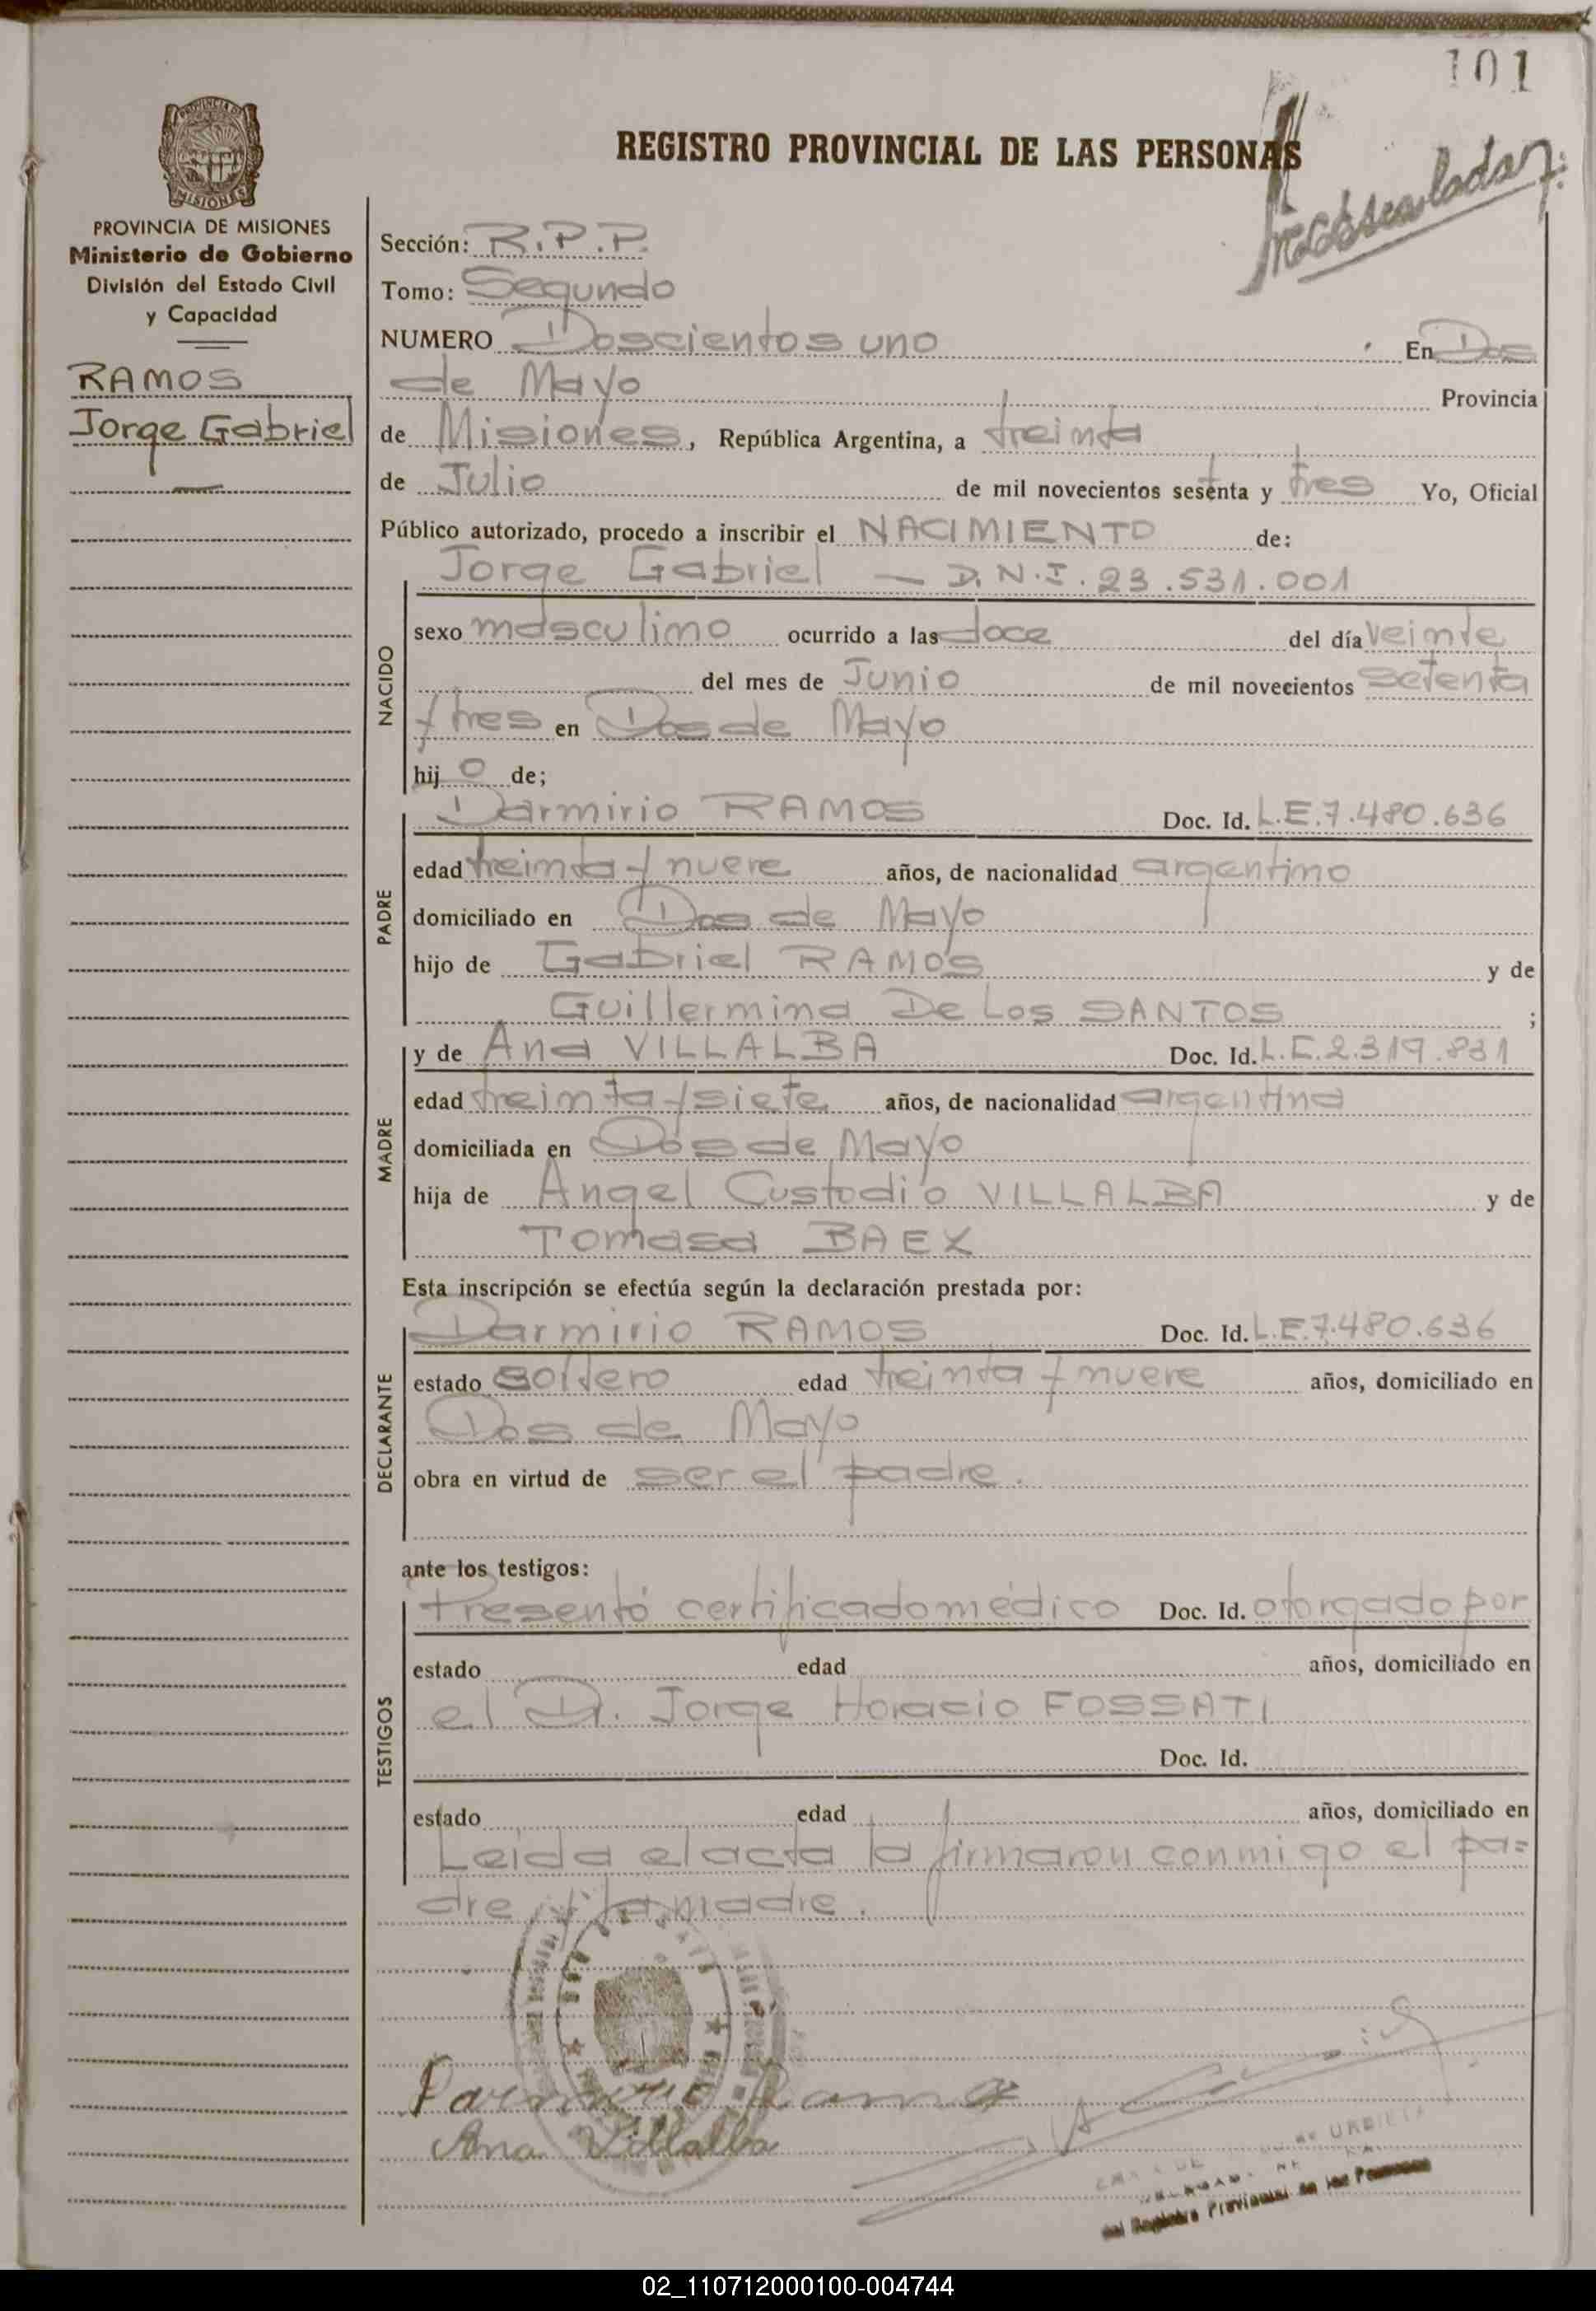 101
REGISTRO PROVINCIAL DE LAS PERSONAS
PROVINCIA DE MISIONES
Ministerio de Gobierno
División del Estado Civil
y Capacidad
RAMOS
Jorge Gabriel
Sección: R.P.P.
Tomo: Segundo
NUMERO Doscientos uno En Dos
de Mayo Provincia
de Misiones, República Argentina, a treinta
de Julio de mil novecientos sesenta y tres Yo, Oficial
Público autorizado, procedo a inscribir el NACIMIENTO de:
NACIDO
Jorge Gabriel — D.N.I. 23.531.001
sexo masculino ocurrido a las doce del día veinte
del mes de Junio de mil novecientos setenta
y tres en Dos de Mayo
hij o de;
PADRE
Darmirio RAMOS Doc. Id. L.E.7.480.636
edad treinta y nueve años, de nacionalidad argentino
domiciliado en Dos de Mayo
hijo de Gabriel RAMOS y de
Guillermina De Los SANTOS ;
MADRE
y de Ana VILLALBA Doc. Id. L.C.2.319.831
edad treinta y siete años, de nacionalidad argentina
domiciliada en Dos de Mayo
hija de Angel Custodio VILLALBA y de
Tomasa BAEZ
Esta inscripción se efectúa según la declaración prestada por:
DECLARANTE
Darmirio RAMOS Doc. Id. L.E.7.480.636
estado soltero edad treinta y nueve años, domiciliado en
Dos de Mayo
obra en virtud de ser el padre.
ante los testigos:
TESTIGOS
Presentó certificado médico Doc. Id. otorgado por
estado edad años, domiciliado en
el Dr. Jorge Horacio FOSSATI
Doc. Id.
estado edad años, domiciliado en
Leída el acta la firmaron conmigo el pa=
dre y la madre.
Darmirio Ramos
Ana Villalba
URBIETA
del Registro Provincial de las Personas
02_110712000100-004744